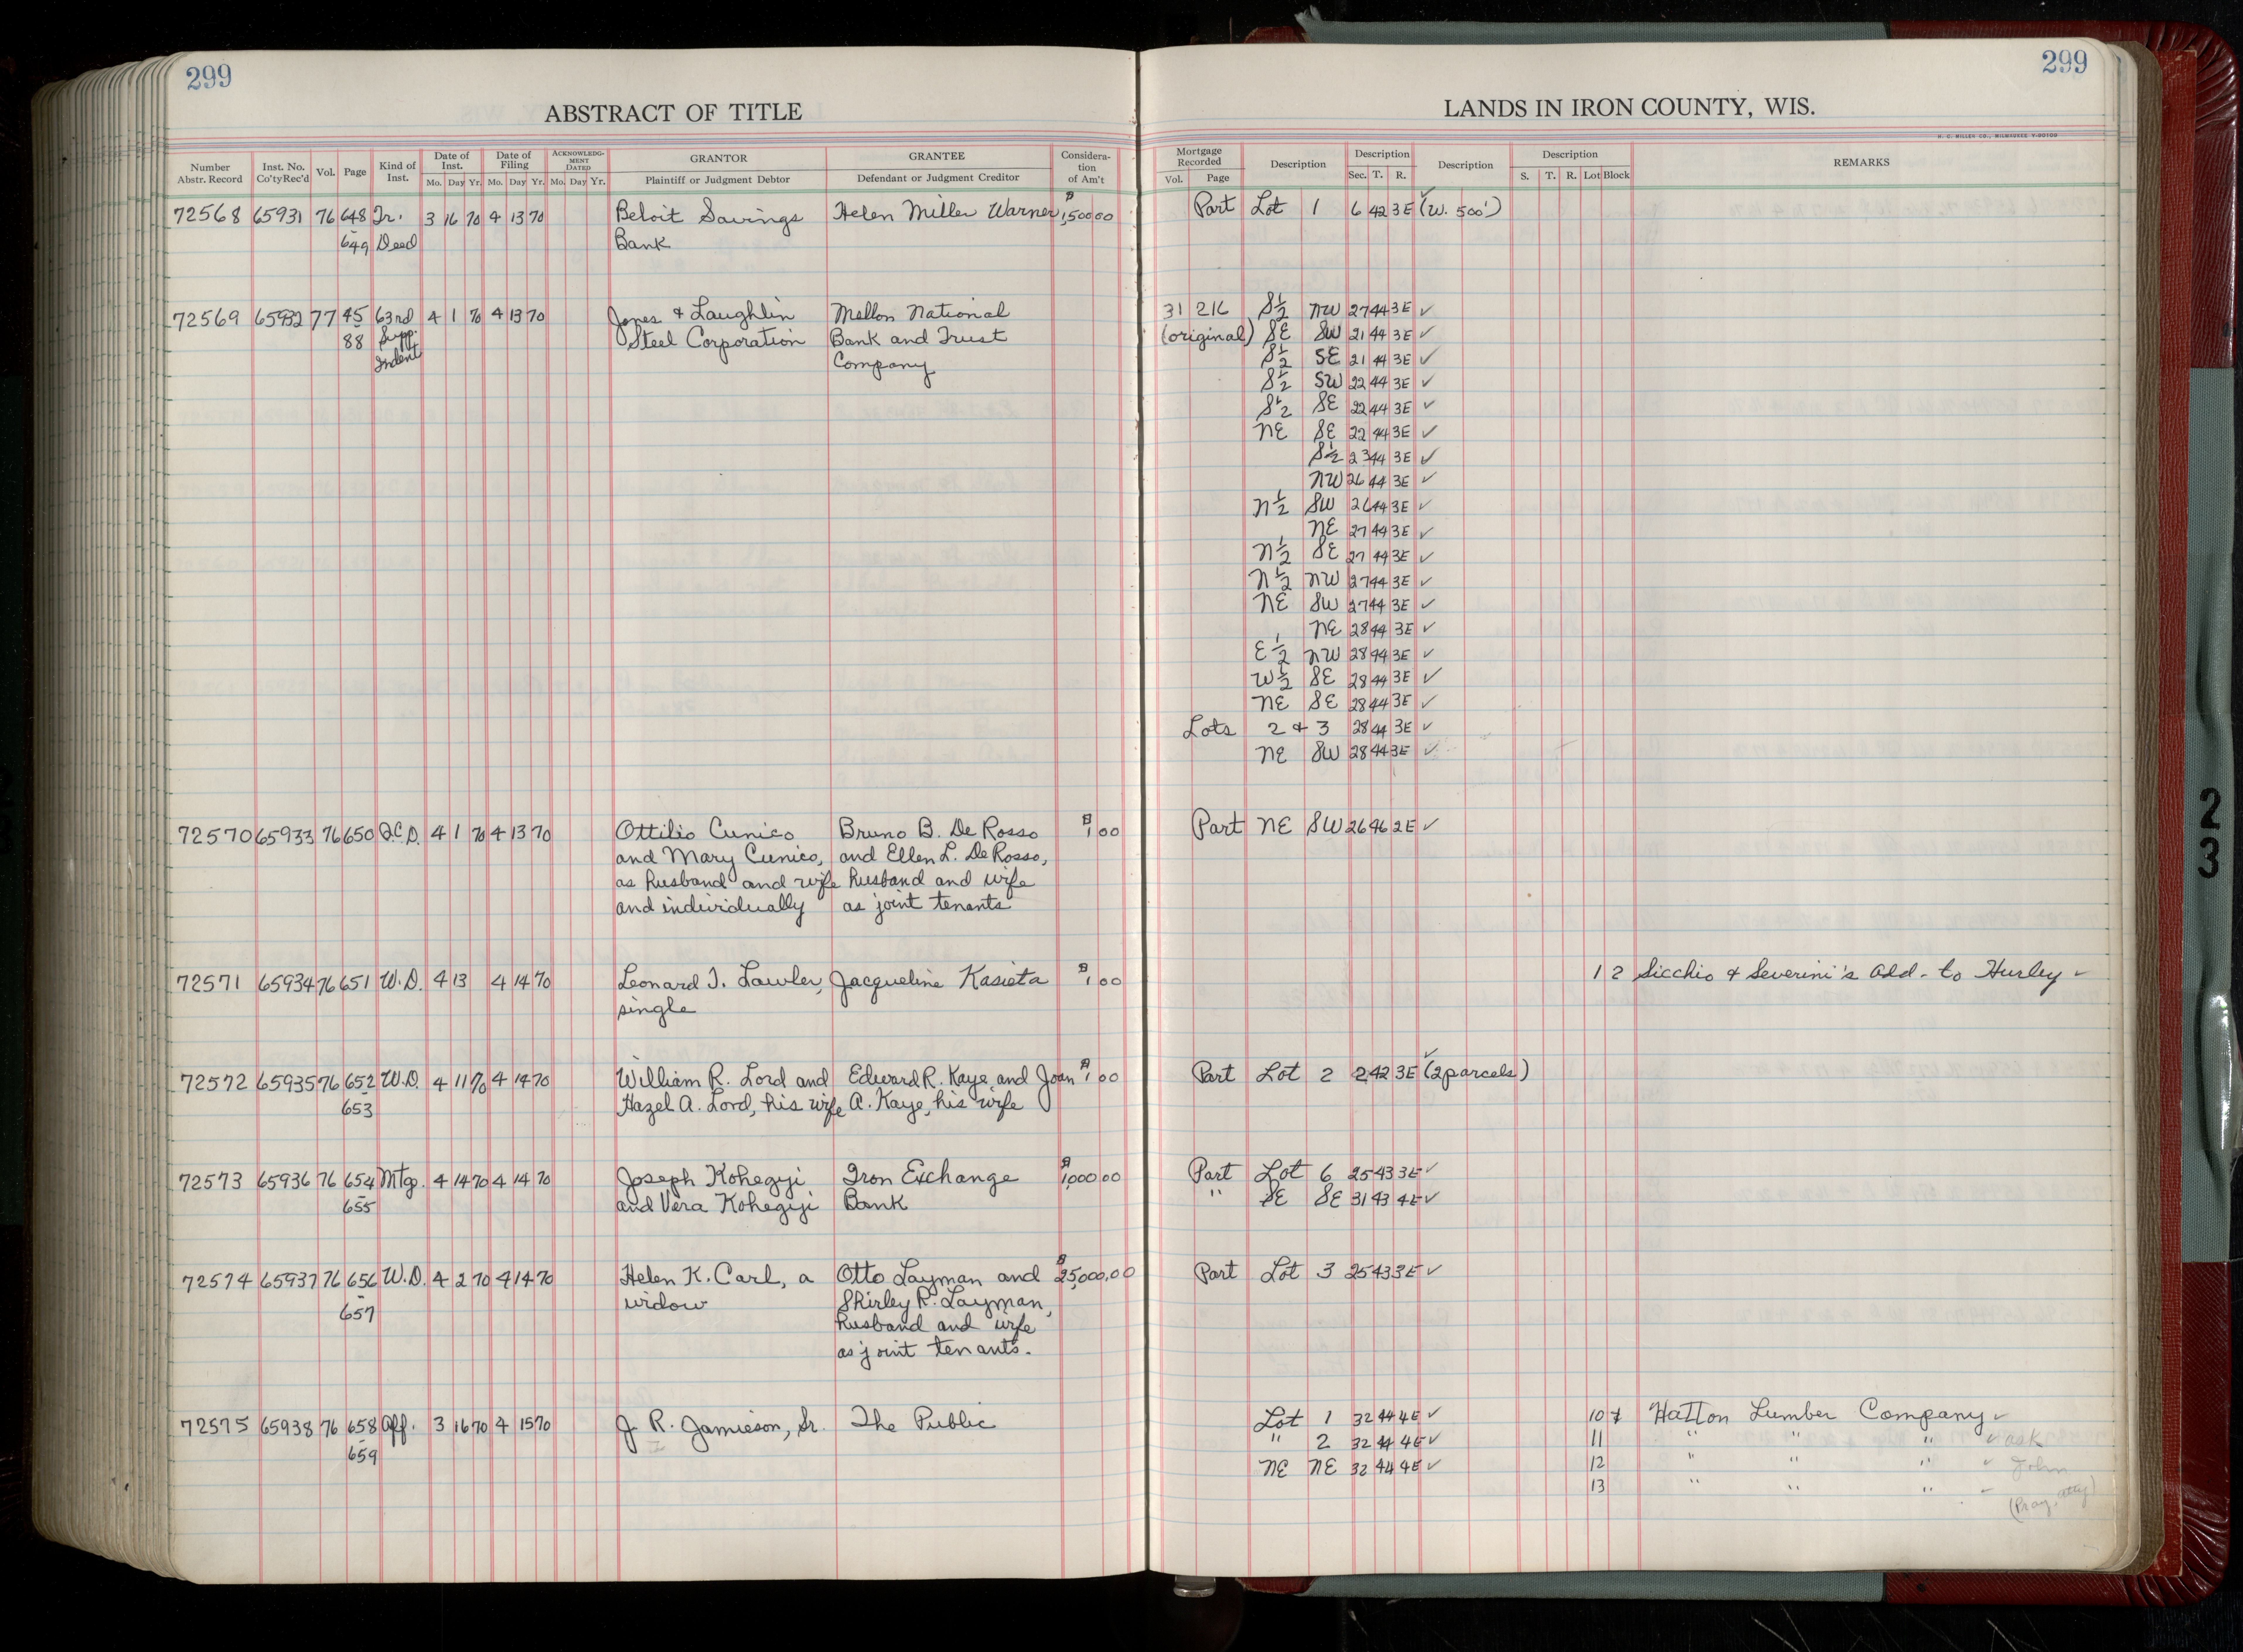 299
299
ABSTRACT OF TITLE
LANDS IN IRON COUNTY, WIS.
H. C. MILLER CO., MILWAUKEE
Number Abstr. Record Inst. No. Co'ty Rec'd Vol. Page Kind of Inst. Date of Inst. Mo. Day Yr. Date of Filing Mo. Day Yr. ACKNOWLEDGMENT DATED Mo. Day Yr. GRANTOR Plaintiff or Judgment Debtor GRANTEE Defendant or Judgment Creditor Consideration of Am't
Mortgage Recorded Vol. Page Description Description Sec. T. R. Description Description S. T. R. Lot Block REMARKS
72568 65931 76 648 Tr. 3 16 70 4 13 70 Beloit Savings Helen Miller Warner $1,500 00 Part Lot 1 6 42 3E (W. 500')
649 Deed Bank
72569 65932 77 45 63rd 4 1 70 4 13 70 Jones & Laughlin Mellon National 31 216 S½ NW 27 44 3E ✓
88 Supp. Steel Corporation Bank and Trust (original) SE SW 21 44 3E ✓
Indent Company S½ SE 21 44 3E ✓
S½ SW 22 44 3E ✓
S½ SE 22 44 3E ✓
NE SE 22 44 3E ✓
S½ 23 44 3E ✓
NW 26 44 3E ✓
N½ SW 26 44 3E ✓
NE 27 44 3E ✓
N½ SE 27 44 3E ✓
N½ NW 27 44 3E ✓
NE SW 27 44 3E ✓
NE 28 44 3E ✓
E½ NW 28 44 3E ✓
W½ SE 28 44 3E ✓
NE SE 28 44 3E ✓
Lots 2 & 3 28 44 3E ✓
NE SW 28 44 3E ✓
72570 65933 76 650 Q.C.D. 4 1 70 4 13 70 Ottilio Cunico Bruno B. De Rosso $1 00 Part NE SW 26 46 2E ✓
and Mary Cunico, and Ellen L. De Rosso,
as husband and wife husband and wife
and individually as joint tenants
72571 65934 76 651 W.D. 4 13 4 14 70 Leonard J. Lawler, Jacqueline Kasieta $1 00 1 2 Sicchio & Severini's Add. to Hurley ✓
single
72572 65935 76 652 W.D. 4 11 70 4 14 70 William R. Lord and Edward R. Kaye and Joan $1 00 Part Lot 2 2 42 3E (2 parcels)
653 Hazel A. Lord, his wife A. Kaye, his wife
72573 65936 76 654 Mtg. 4 14 70 4 14 70 Joseph Kohegyi Iron Exchange $1,000 00 Part Lot 6 25 43 3E ✓
655 and Vera Kohegyi Bank " SE SE 31 43 4E ✓
72574 65937 76 656 W.D. 4 2 70 4 14 70 Helen K. Carl, a Otto Layman and $25,000,00 Part Lot 3 25 43 3E ✓
657 widow Shirley R. Layman,
husband and wife
as joint tenants.
72575 65938 76 658 Aff. 3 16 70 4 15 70 J. R. Jamieson, Sr. The Public Lot 1 32 44 4E ✓ 10 Hatton Lumber Company ✓
659 " 2 32 44 4E ✓ 11 " " " ✓ ask
NE NE 32 44 4E ✓ 12 " " " ✓ John
13 " " " ✓
(Pray, atty)
23